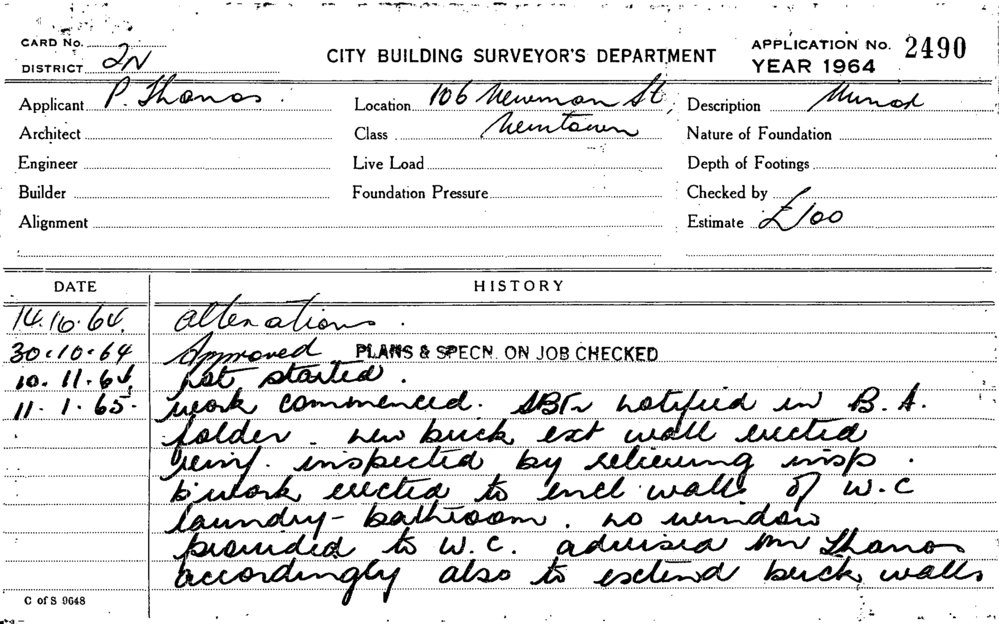 CARD No.
DISTRICT 2N
CITY BUILDING SURVEYOR'S DEPARTMENT
APPLICATION No. 2490
YEAR 1964
Applicant P. Thanos.
Location 106 Newman St,
Description
Architect
Class Newtown
Nature of Foundation
Engineer
Live Load
Depth of Footings
Builder
Foundation Pressure
Checked by
Alignment
Estimate £100
DATE
HISTORY
14.10.64. alterations.
30.10.64 Approved PLANS & SPECN. ON JOB CHECKED
10.11.64 not started.
11.1.65. work commenced. notified in B.A.
folder. new brick ext wall erected
reinf. inspected by relieving insp.
b'work erected to encl walls of W.C
laundry - bathroom. no window
provided to W.C. advised Mr Thanos
accordingly also to extend brick walls
C of S 9648